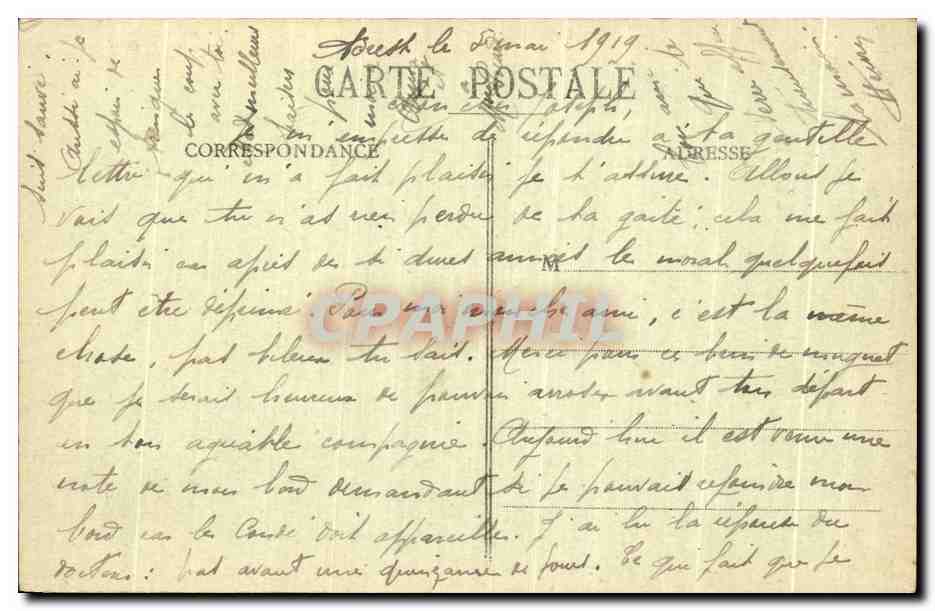 Brest le 8 mai 1919
CARTE POSTALE
Mon cher Joseph,
m'empresse de répondre à ta gentille
CORRESPONDANCE
ADRESSE
lettre qui m'a fait plaisir je t'assure. Allons je
vois que tu n'as rien perdu de ta gaité, cela me fait
plaisir car après de si dures années le moral quelquefois
M
peut être déprimé. Pour moi mon cher ami, c'est la même
CPAPHIL
chose, pas bileux tu sais. Merci pour ce brin de muguet
que je serais heureux de pouvoir arroser avant ton départ
en ton agréable compagnie. Aujourd'hui il est venu une
note de mon bord demandant si je pouvais rejoindre mon
bord car le Condé doit appareiller. J'ai lu la réponse du
docteur : pas avant une quinzaine de jours. Ce qui fait que je
suis sauvé.
Aussi ai-je
espoir de
trinquer
le coup
avec toi.